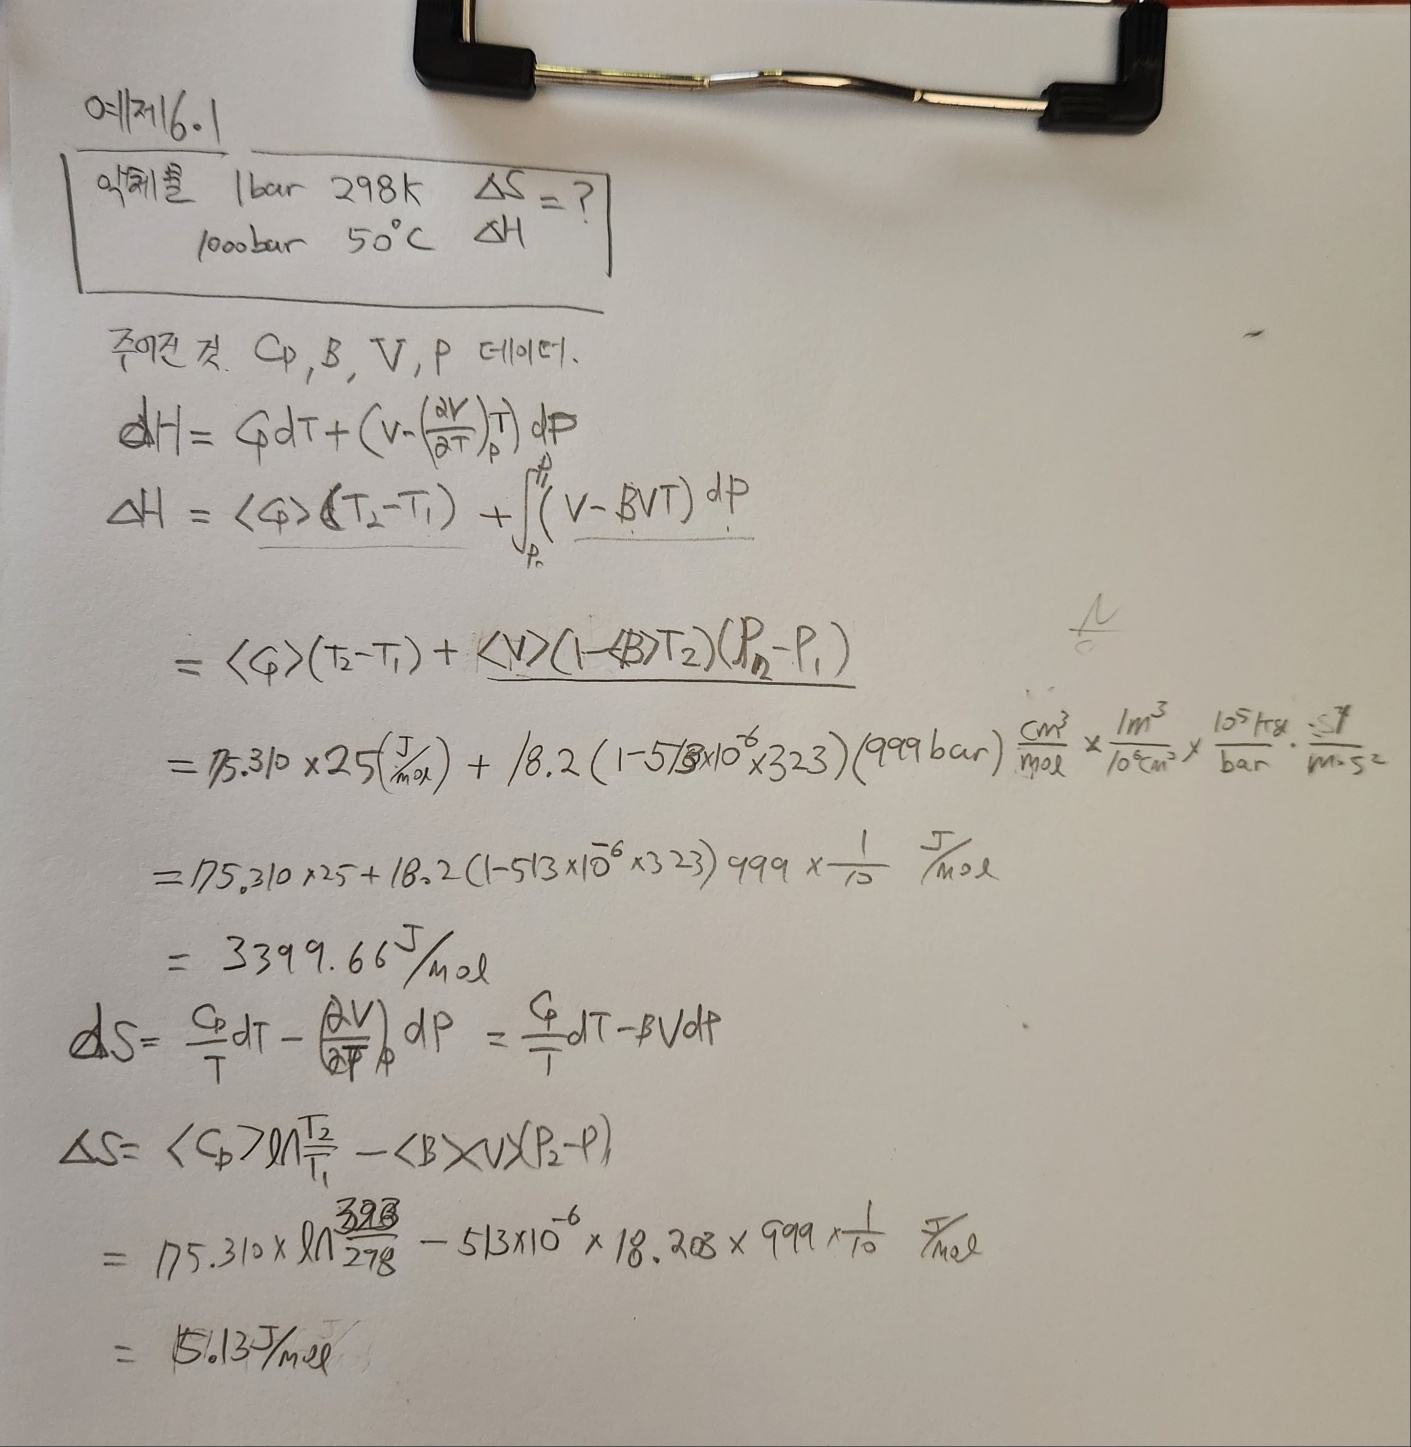 예제6.1
액체물 1bar 298K ΔS = ?
1000bar 50°C ΔH
주어진 것. Cp, B, V, P 데이터.
dH = CpdT + (V-(∂V/∂T)pT) dP
ΔH = <Cp>(T2-T1) + ∫(V-BVT) dP
= <Cp>(T2-T1) + <V>(1-<B>T2)(P2-P1)
= 75.310 × 25(J/mol) + 18.2 (1-513×10^-6×323)(999bar) cm³/mol × 1m³/10^6cm³ × 10^5 /bar · /m·s²
= 75.310 ×25 + 18.2(1-513×10^-6×323) 999 × 1/10 J/mol
= 3399.66 J/mol
dS = Cp/T dT - (∂V/∂T)p dP = Cp/T dT - BVdP
ΔS = <Cp>ln T2/T1 - <B><V>(P2-P1)
= 75.310 × ln 323/298 - 513×10^-6 × 18.208 × 999 × 1/10 J/mol
= 5.13 J/mol